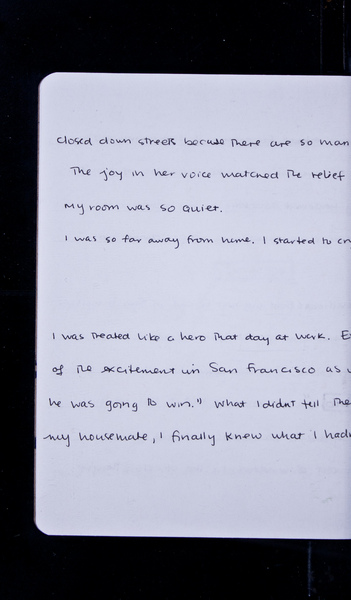 closed down streets because there are so man
The joy in her voice matched the relief
My room was so quiet.
I was so far away from home. I started to cr
I was treated like a hero that day at work. E
of the excitement in San Francisco as
he was going to win." What I didn't tell the
my housemate, I finally knew what I hadn